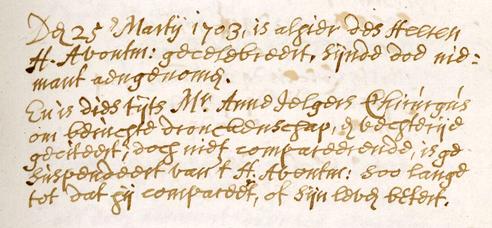 Den 25 Martij 1703, is alhier des Heeren
H. Avontm: gecelebreert, sijnde doe nie-
mant aengenomen.
En is dies tijts Mr. Anne Jelgers Chirurgus
om beruchte dronckenschap, en vechterije
geciteert, doch niet compareerende, is ge-
suspendeert van 't H. Avontm: soo lange
tot dat hij compareert, of sijn leven betert.